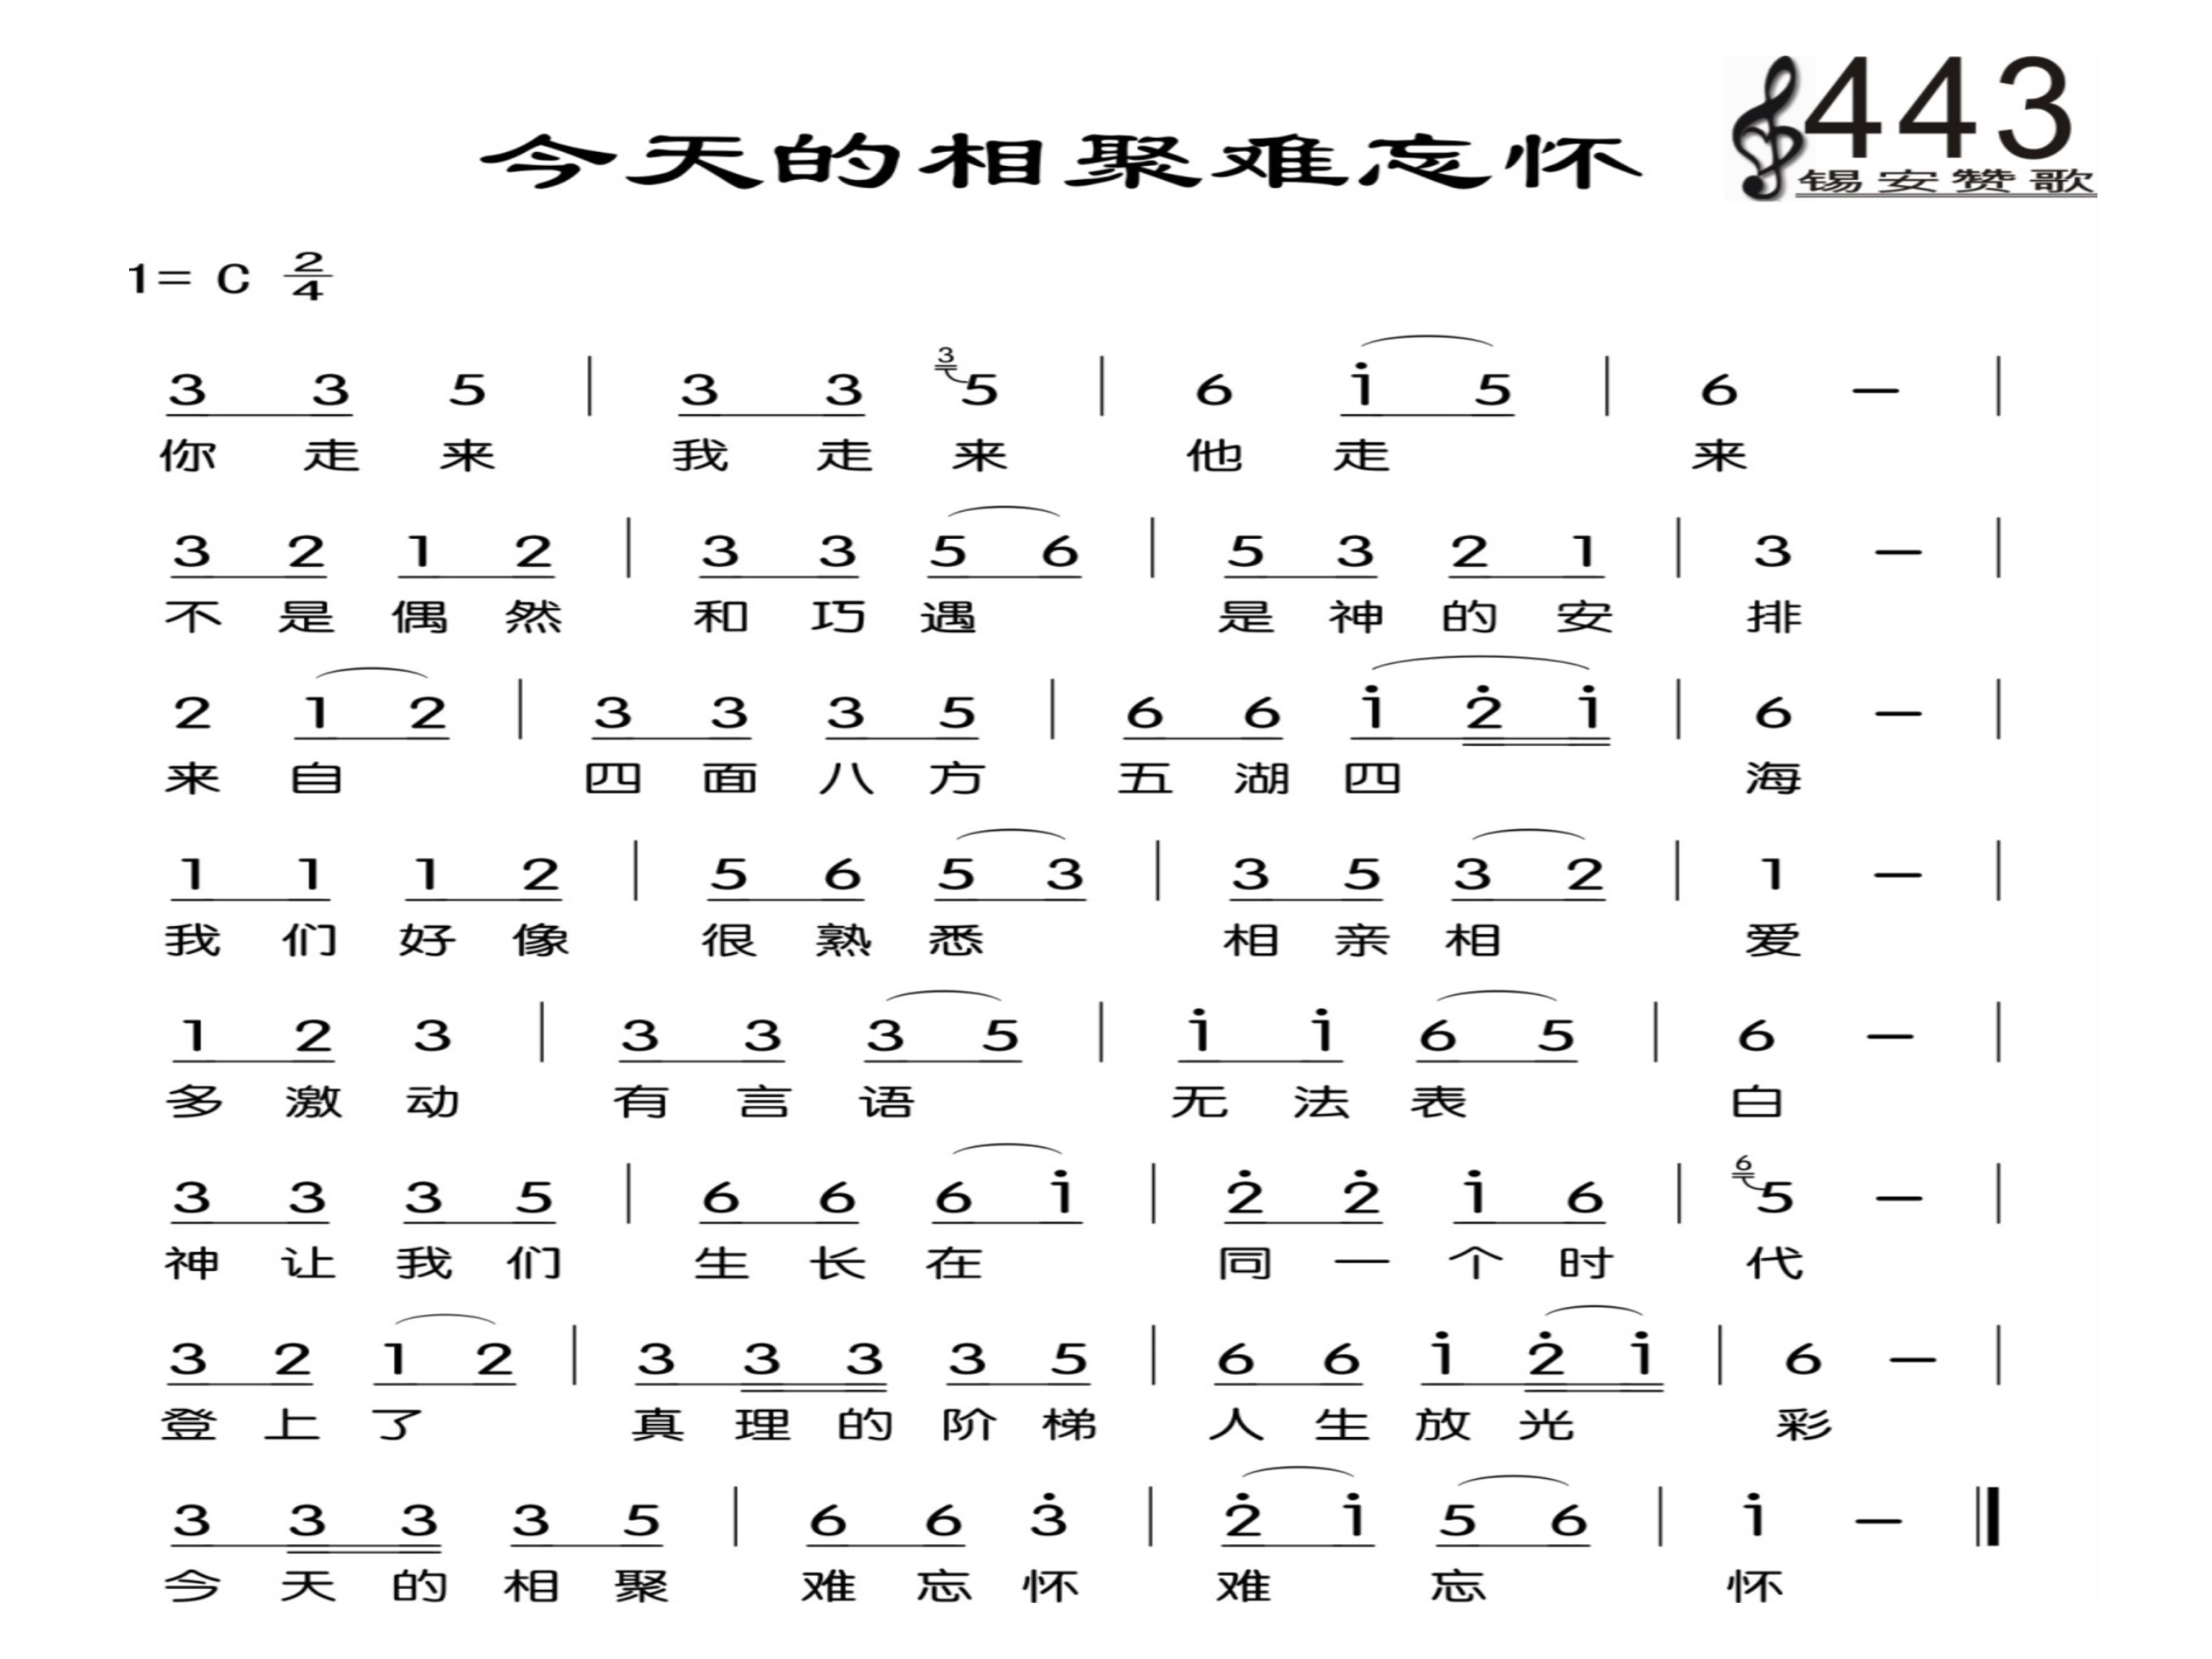 443
今天的相聚难忘怀
锡安赞歌
1= C 2/4
3 3 5 | 3 3 3 5 | 6 i 5 | 6 — |
你 走 来 我 走 来 他 走 来
3 2 1 2 | 3 3 5 6 | 5 3 2 1 | 3 — |
不 是 偶 然 和 巧 遇 是 神 的 安 排
2 1 2 | 3 3 3 5 | 6 6 i 2̇ i | 6 — |
来 自 四 面 八 方 五 湖 四 海
1 1 1 2 | 5 6 5 3 | 3 5 3 2 | 1 — |
我 们 好 像 很 熟 悉 相 亲 相 爱
1 2 3 | 3 3 3 5 | i i 6 5 | 6 — |
多 激 动 有 言 语 无 法 表 白
3 3 3 5 | 6 6 6 i | 2̇ 2̇ i 6 | 6 5 — |
神 让 我 们 生 长 在 同 一 个 时 代
3 2 1 2 | 3 3 3 3 5 | 6 6 i 2̇ i | 6 — |
登 上 了 真 理 的 阶 梯 人 生 放 光 彩
3 3 3 3 5 | 6 6 3̇ | 2̇ i 5 6 | i — ‖
今 天 的 相 聚 难 忘 怀 难 忘 怀